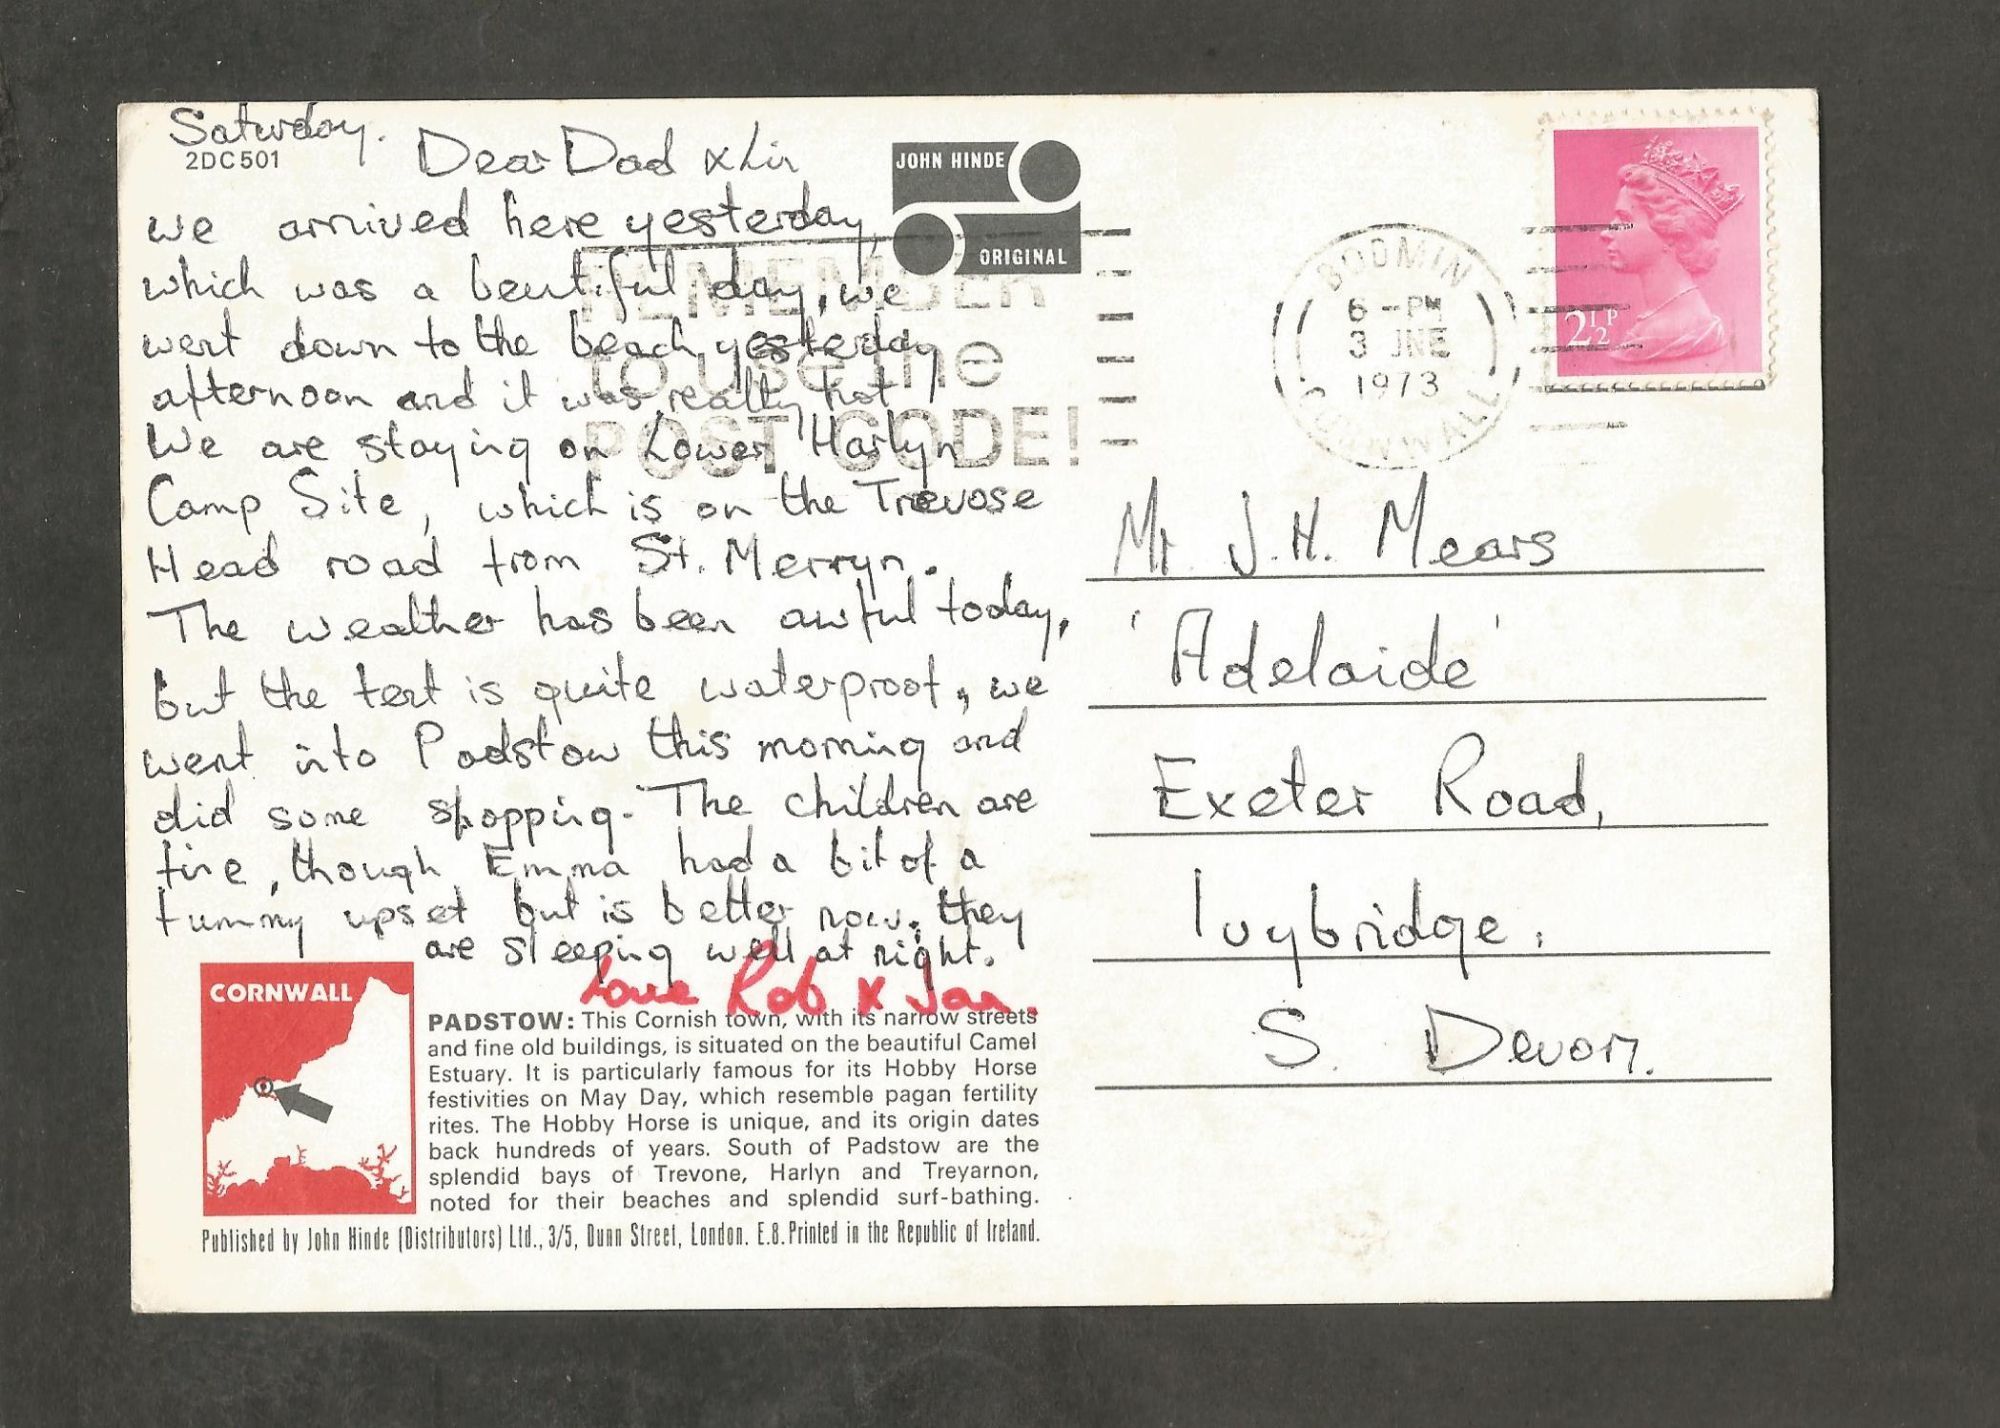 Saturday.
2DC501
Dear Dad x Lin
we arrived here yesterday,
which was a beutiful day, we
went down to the beach yesterday
afternoon and it was really hot
We are staying on Lower Harlyn
Camp Site, which is on the Trevose
Head road from St. Merryn.
The weather has been awful today,
but the tent is quite waterproof, we
went into Padstow this morning and
did some shopping. The children are
fine, though Emma had a bit of a
tummy upset but is better now. they
are sleeping well at night.
Love Rob x Jan.
JOHN HINDE
ORIGINAL
REMEMBER
to use the
POST CODE!
BODMIN
6 - PM
3 JNE
1973
CORNWALL
2½P
Mr J.H. Mears
'Adelaide'
Exeter Road,
Ivybridge.
S. Devon.
CORNWALL
PADSTOW: This Cornish town, with its narrow streets
and fine old buildings, is situated on the beautiful Camel
Estuary. It is particularly famous for its Hobby Horse
festivities on May Day, which resemble pagan fertility
rites. The Hobby Horse is unique, and its origin dates
back hundreds of years. South of Padstow are the
splendid bays of Trevone, Harlyn and Treyarnon,
noted for their beaches and splendid surf-bathing.
Published by John Hinde (Distributors) Ltd., 3/5, Dunn Street, London. E.8. Printed in the Republic of Ireland.